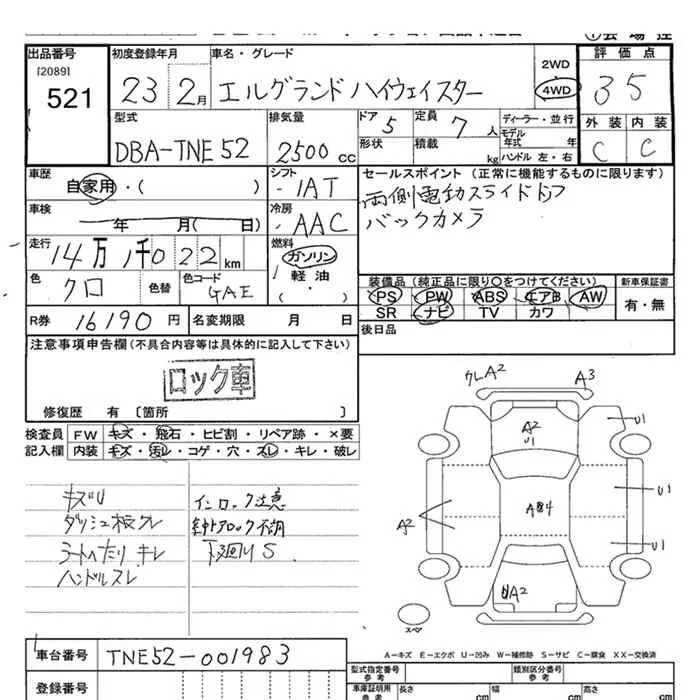 出品番号 初度登録年月 車名・グレード 2WD 4WD 評価点
[2089]
521 23 2月 エルグランド ハイウェイスター 35
型式 排気量 ドア 5 定員 7人 ディーラー・並行 外装 内装
DBA-TNE52 2500cc 形状 積載 kg モデル年式 年 ハンドル 左・右 C C
車歴 自家用・( ) シフト IAT セールスポイント (正常に機能するものに限ります)
両側電動スライドドア
バックカメラ
車検 年 月( 日) 冷房 AAC
走行 14万1千022km 燃料 ガソリン 軽油・( )
色 クロ 色替 色コード GAE
装備品 (純正品に限り○をつけてください) 新車保証書
PS PW ABS エアB AW 有・無
SR ナビ TV カワ
R券 16190円 名変期限 月 日 後日品
注意事項申告欄(不具合内容等は具体的に記入して下さい)
ロック車
修復歴 有 [箇所 ]
検査員 FW キズ・飛石・ヒビ割・リペア跡・×要
記入欄 内装 キズ・汚レ・コゲ・穴・スレ・キレ・破レ
キズU インロック注意
ダッシュ板クレ
シートへたり キレ 下廻りS
ハンドルスレ
クレA2 A3
A2 U1 U1
U1
A2
U1
A2
スペア
A-キズ E-エクボ U-凹み W-補修跡 S-サビ C-腐食 XX-交換済
車台番号 TNE52-001983
型式指定番号 参考 類別区分番号 参考
登録番号 車庫証明用 参考 長さ cm 幅 cm 高さ cm